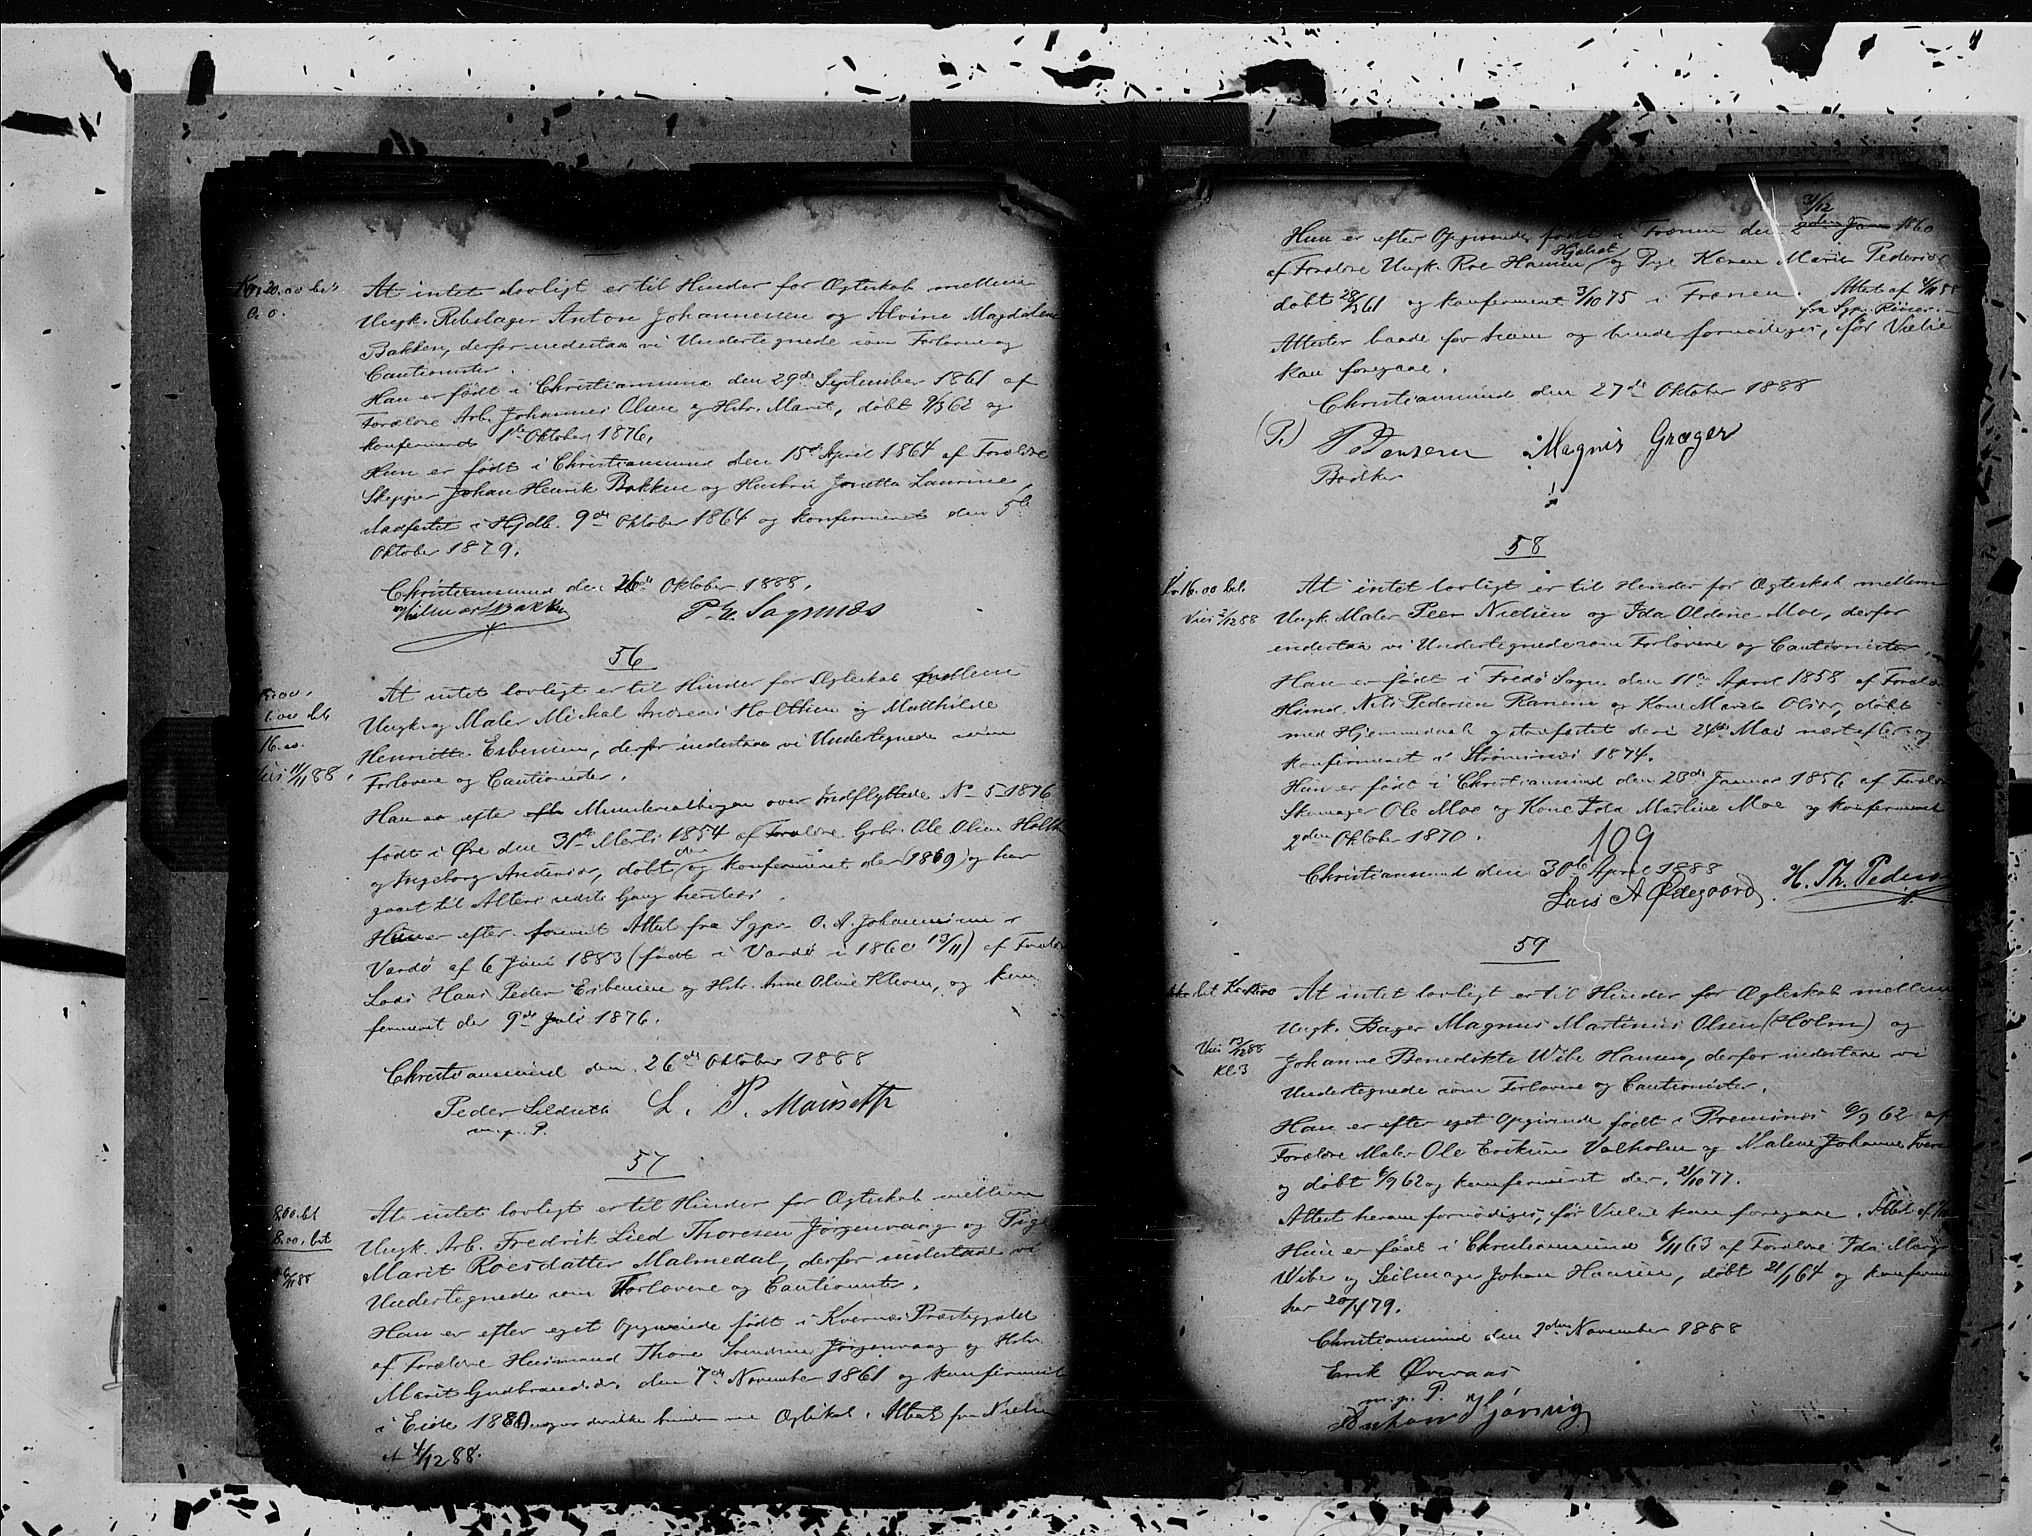 Kr. 20.00 bet
At intet lovligt er til Hinder for Ægteskab mellem
Ungk. Rebslager Anton Johannesen og Alvine Magdalene
Bakken, derfor indestaa vi Undertegnede som Forlovere og
Cautionister.
Han er født i Christiansund den 29de September 1861 af
Forældre Arb. Johannes Olsen og Hstr. Marit, døbt 62 og
konfirmeret 1ste Oktober 1876.
Hun er født i Christiansund den 15de April 1864 af Forældre
Skipper Johan Henrik Bakken og Hustru Jonetta Laurine,
stadfæstet i Hjdb. 9de Oktober 1864 og konfirmeret den 5te
Oktober 1879.
Christiansund den 26de Oktober 1888.
Hilmar Bakken P. E. Sagmæs
56
At intet lovligt er til Hinder for Ægteskab mellem
Ungk. og Maler Mickal Andreas Holthen og Matthilde
Henriette Esbensen, derfor indestaa vi Undertegnede som
Forlovere og Cautionister.
16.00
Viet 11/11 88.
Han er efter Ministerialbogen over Indflyttede No 5 1876
født i Øre den 31te Marts 1854 af Forældre Gbr. Ole Olsen Holth
og Ingeborg Andersdr, døbt den og konfirmeret den (1869) og har
gaaet til Alters sidste Gang hersteds.
Hun er efter foreviist Attest fra Sgpr. O. A. Johannesen i
Vardø af 6 Juni 1883 (født i Vardø i 1860 13/11) af Forældre
Lods Hans Peder Esbensen og Hstr. Anne Oline Kleven, og kon
firmeret den 9de Juli 1876.
Christiansund den 26de Oktober 1888
Peder Sildseth L. P. Mauseth
m. p. P.
57
8.00 bt
8.00. bet
At intet lovligt er til Hinder for Ægteskab mellem
Ungk. Arb. Fredrik Lied Thoresen Jørgenvaag og Pige
Marit Roesdatter Malmedal, derfor indestaa vi
Undertegnede som Forlovere og Cautionister.
Han er efter eget Opgivende født i Kvernes Præstegjeld
af Forældre Husmand Thore Svendsen Jørgenvaag og Hstr.
Marit Gudbrandsdr. den 7de November 1861 og konfirmeret
i Eide 1880 Ægteskab. Attest fra
af 4/12 88.
31/12
Hun er efter Opgivende født i Frænen den 2den Jan 1860
af Forældre Ungk. Roe Hansen Hjelset og Pige Karen Marie Pedersdr
døbt 28/3 61 og konfirmeret 3/10 75 i Frænen. Attest af
fra Sgpr.
Attester baade for ham og hende fornødiges, før Vielse
kan foregaae.
Christiansund den 27de Oktober 1888
(P.) P. Hansen Magnus Græger
Bødker
58
Kr. 16.00 bet.
Viet 2/12 88
At intet lovligt er til Hinder for Ægteskab mellem
Ungk. Maler Peer Nielsen og Ida Oldine Moe, derfor
indestaa vi Undertegnede som Forlovere og Cautionister.
Han er født i Fredø Sogn den 11te April 1858 af Forældre
Hsmd. Nils Pedersen Ranem og Kone Marit Olsdr, døbt
med Hjemmedaab og stadfæstet den 24de Mai næstefter og
konfirmeret i Strømsnæs 1874.
Hun er født i Christiansund den 23de Januar 1856 af Forældre
Skomager Ole Moe og Kone Ida Martine Moe og konfirmeret
2den Oktober 1870.
109
Christiansund den 30te April 1888
Lars A Ødegaard. H. Th. Pedersen
59
Viet 13/12 88
Kl 3
At intet lovligt er til Hinder for Ægteskab mellem
Ungk. Bager Magnus Martinus Olsen (Holm) og
Johanne Benedikte Wibe Hansen, derfor indestaa vi
Undertegnede som Forlovere og Cautionister.
Han er efter eget Opgivende født i Bremsnæs 6/9 62 af
Forældre Maler Ole Eriksen Valholm og Malene Johanne Iversd
og døbt 6/9 62 og konfirmeret den 21/10 77.
Attest herom fornødiges, før Vielse kan foregaae. Attest af
Hun er født i Christiansund 6/11 63 af Forældre Ida Margr.
Wibe og Seilmager Johan Hansen, døbt 21/1 64 og konfirmeret
her 20/4 79.
Christiansund den 2den November 1888
Erik Øveraas
m. p. P.
Hjørring